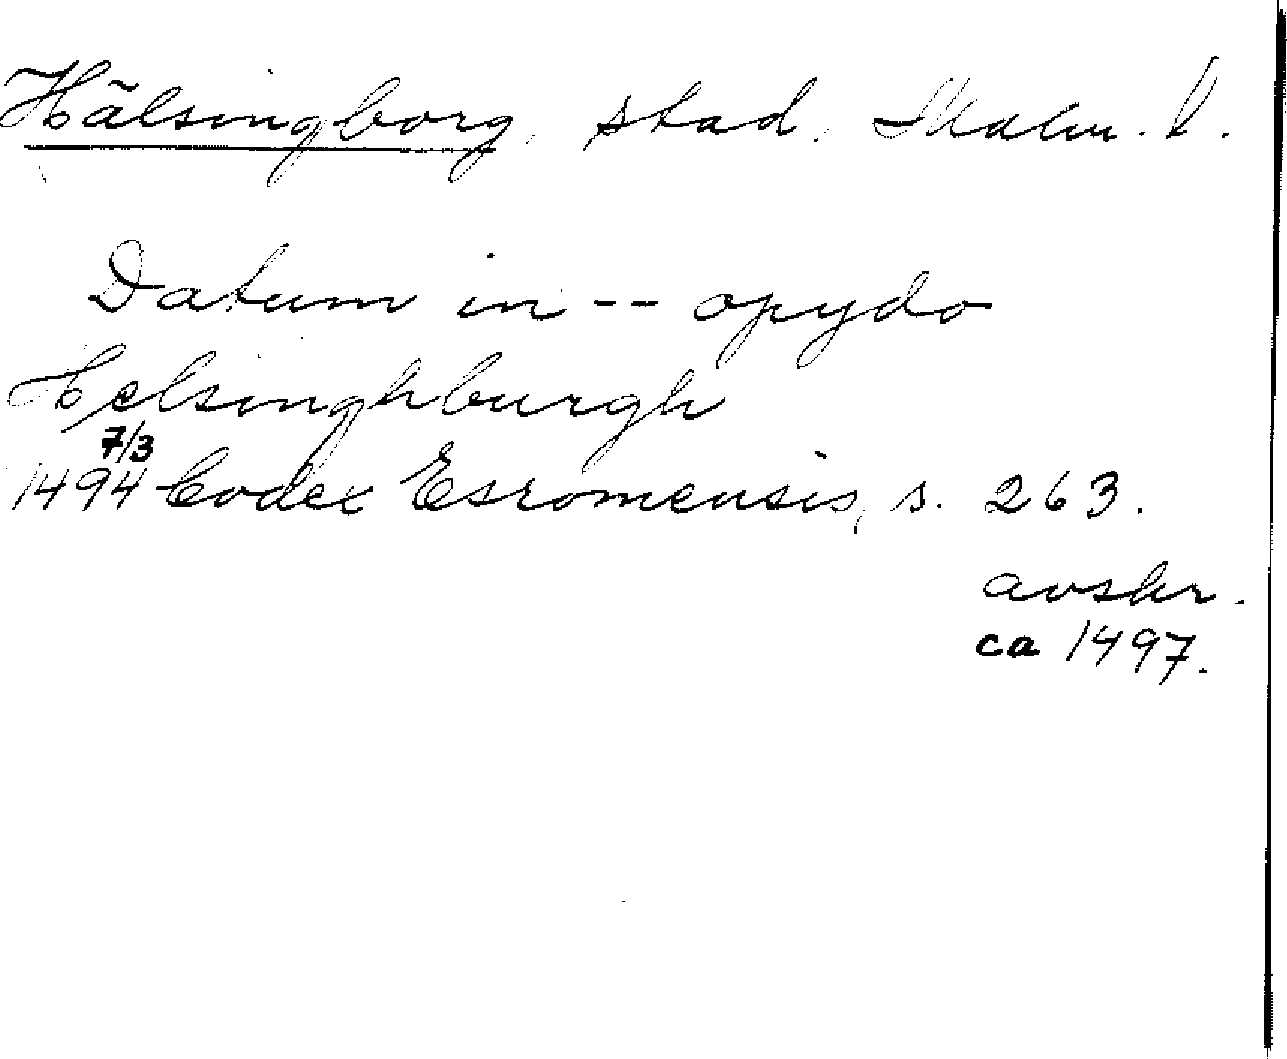 Hälsingborg, stad. Malm. l.
Datum in -- opydo
Helsinghburgh
7/3
1494 Codex Esromensis, s. 263.
avskr.
ca 1497.